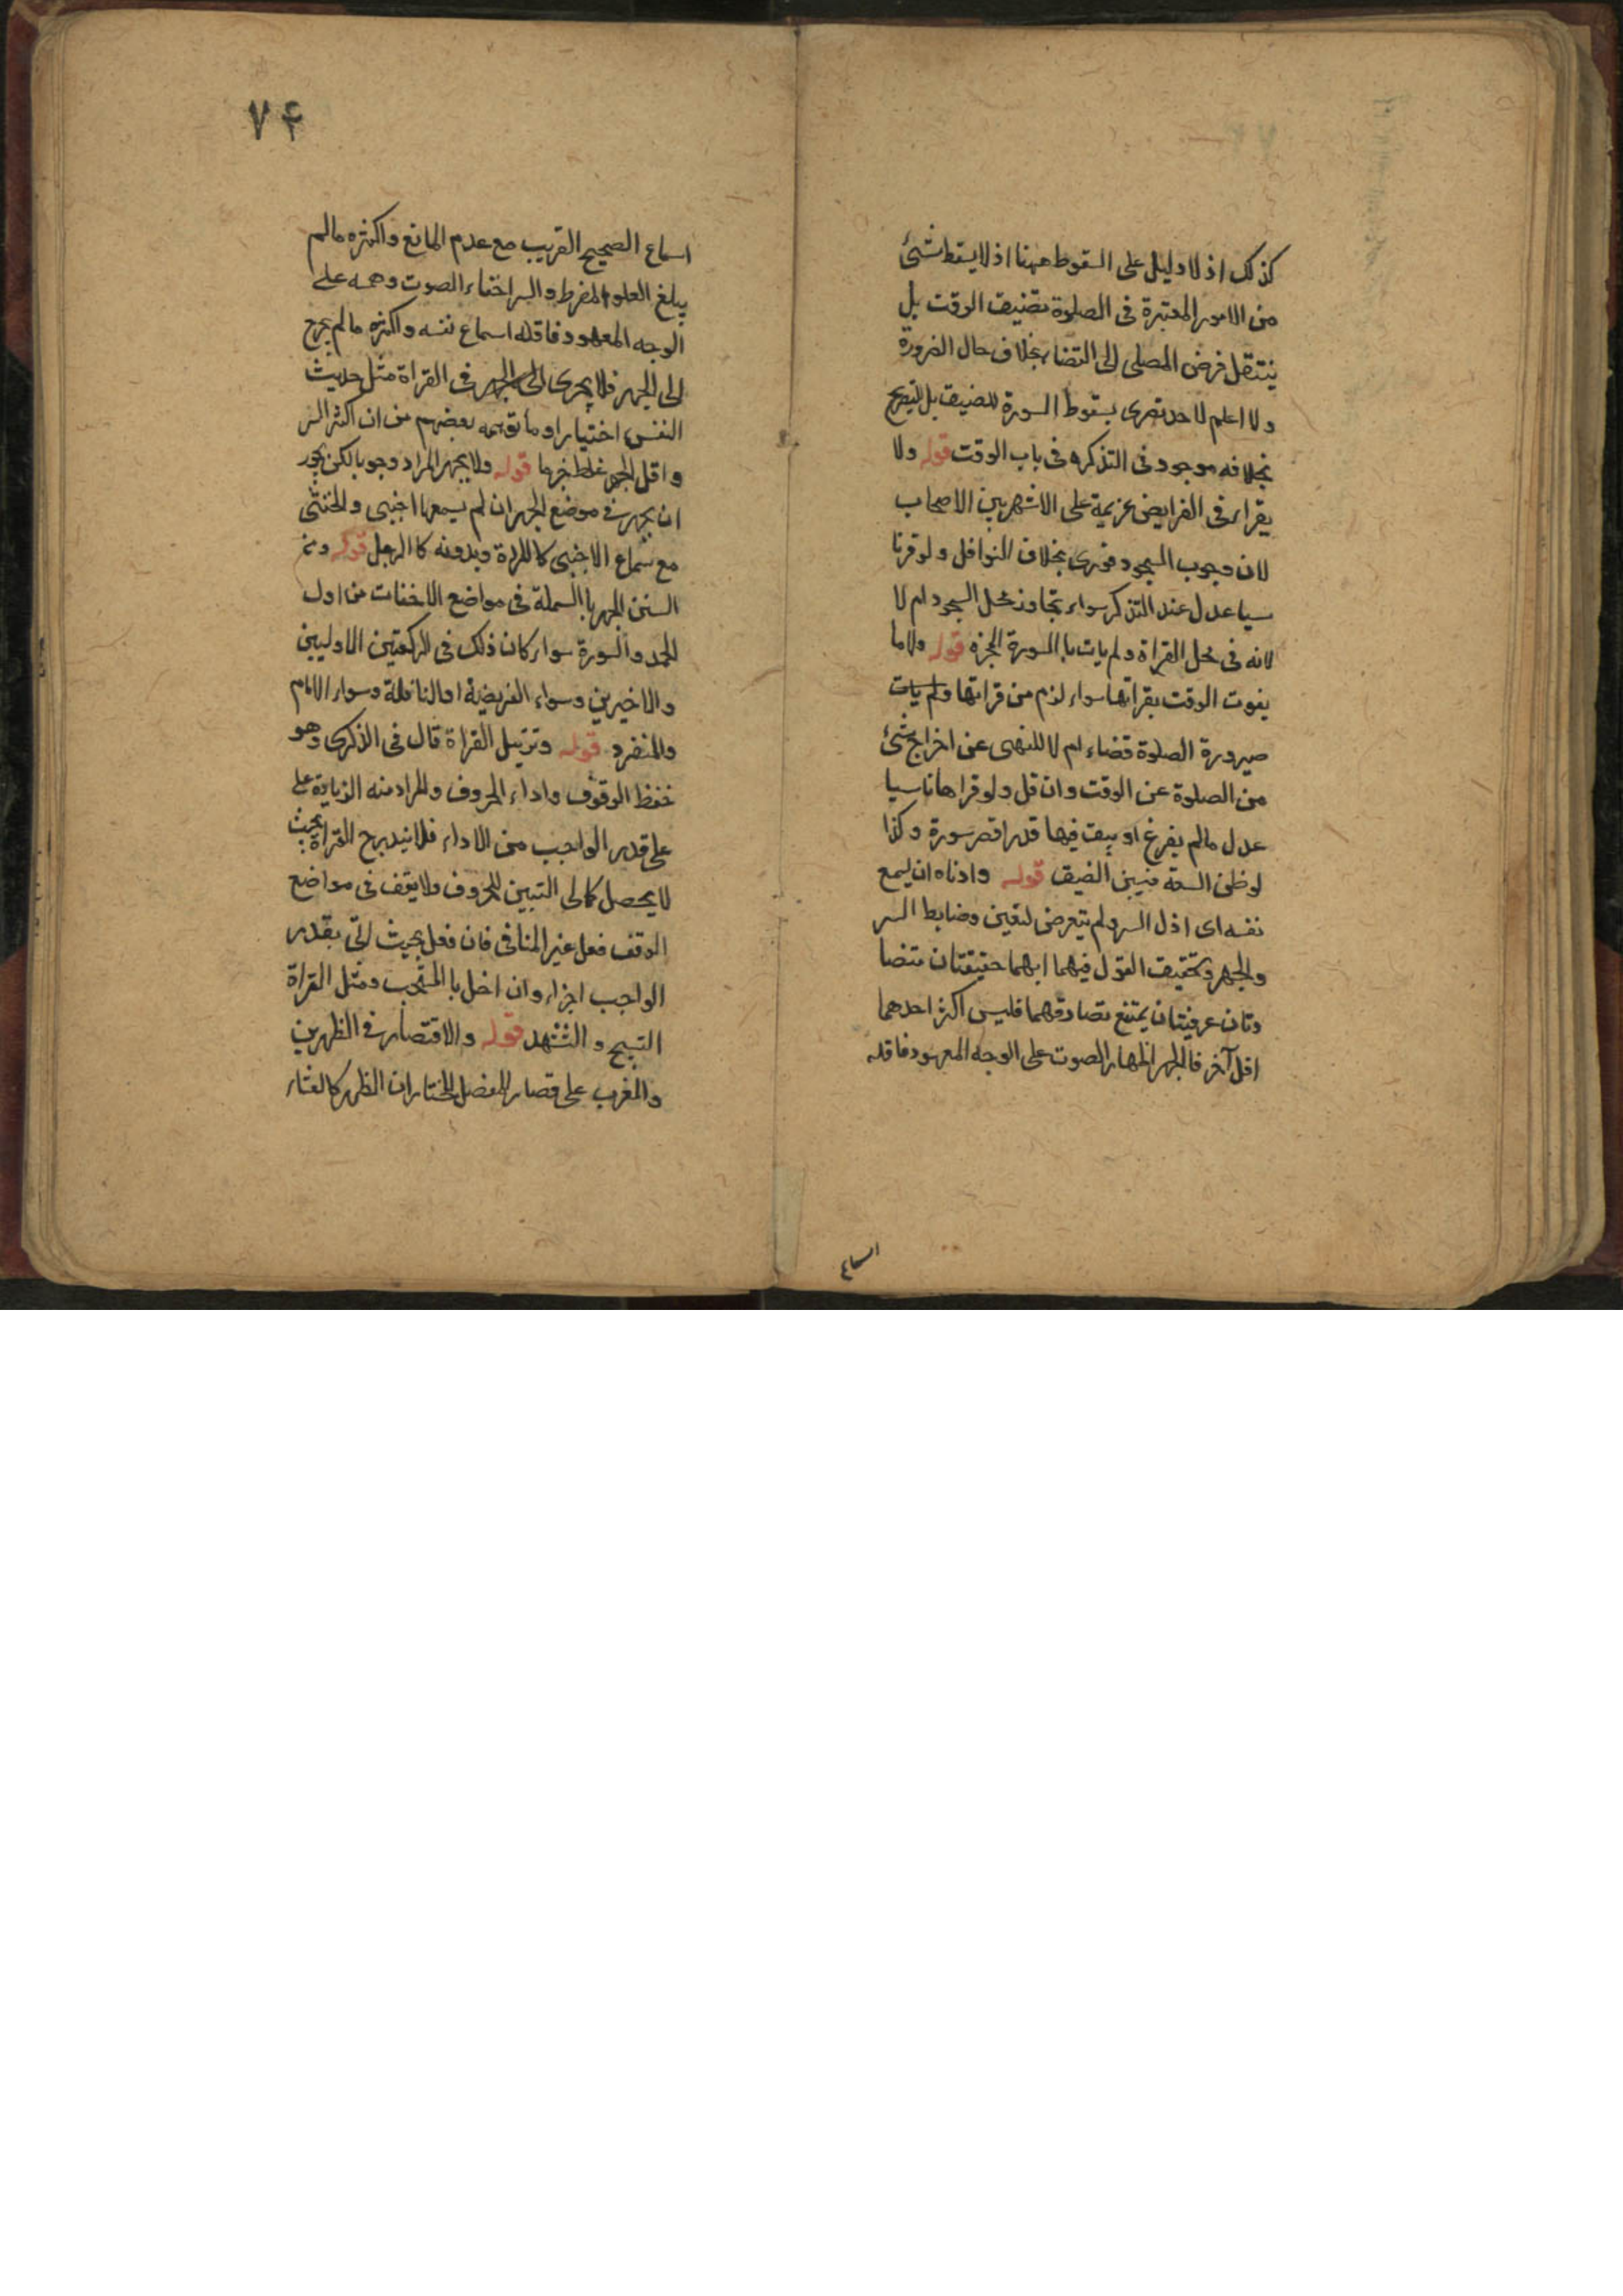 كذلك اذ لا دليل على السقوط ههنا اذ لا يسقط شئ
من الامور المعتبرة فى الصلوة بتضيق الوقت بل
ينتقل فرض المصلى الى القضاء بخلاف حال الضرورة
ولا اعلم لاحد تصرى بسقوط السورة للضيق بل التصريح
بخلافه موجود فى التذكره فى باب الوقت قوله ولا
يقراء فى الفرايض عزيمة على الاشهر بين الاصحاب
لان وجوب السجود فورى بخلاف النوافل ولو قرنا
سيا عدل عند التذكر سواء تجاوز محل السجود ام لا
لانه فى محل القراة ولم يات با السورة المجزه قوله ولا ما
يفوت الوقت بقراتها سواء لزم من قراتها ولم يات
صيرورة الصلوة قضاء ام لا للنهى عن اخراج شئ
من الصلوة عن الوقت وان قل ولو قراها ناسيا
عدل مالم يفرغ او يبقت فيها قدر اقصر سورة وكذا
لو ظن السعة فتبين الضيق قوله وادناه ان يسمع
نفسه اى اذل السر ولم يتعرض لتعين وضابط السر
والجهر وتحقيق القول فيهما ابهما حقيقتان متضا
دتان عرفيتان يمتنع تصادقهما فليس اكثر احدهما
اقل آخر فالجهر اظهار الصوت على الوجه المعهود فاقله
اسماع
۷۴
اسماع الصحيح القريب مع عدم المانع واكثره مالم
يبلغ العلو المفرط والسر اخفاء الصوت وهمسه على
الوجه المعهود فاقله اسماع نفسه واكثره مالم يخرج
الى الجهر فلا يجرى الى الجهر فى القراة مثل حديث
النفس اختيارا وما توهمه بعضهم من ان اكثر السر
واقل الجهر غلط قوله ولا يجهر المراد وجوبا لكن يجوز
ان يجهر فى موضع الجهر ان لم يسمعها اجنبى والخنثى
مع سماع الاجنبى كا المراة وبدونه كا الرجل قوله ومن
السنن الجهر با البسملة فى مواضع الاخفات من اول
الحمد والسورة سواء كان ذلك فى الركعتين الاوليين
والاخيرين وسواء الفريضة او النافلة وسواء الامام
والمنفرد قوله وترتيل القراة قال فى الذكرى وهو
حفظ الوقوف واداء الحروف والمراد منه الزيادة على
على قدر الواجب من الاداء فلا يندبرج القراة بحيث
لا يحصل كمالى التبيين للحروف ولا يقف فى مواضع
الوقف فعل غير المنافى فان فعل بحيث اتى بقدر
الواجب اجزاء وان اخل با المستحب ومثل القراة
التسبيح و التشهد قوله والاقتصار فى الظهرين
والمغرب على قصار المفصل المختار ان الظهر كا لعشاء